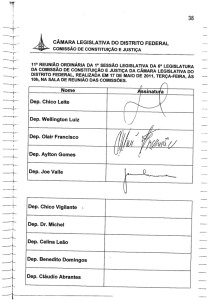 38
CÂMARA LEGISLATIVA DO DISTRITO FEDERAL
COMISSÃO DE CONSTITUIÇÃO E JUSTIÇA
11ª REUNIÃO ORDINÁRIA DA 1ª SESSÃO LEGISLATIVA DA 6ª LEGISLATURA
DA COMISSÃO DE CONSTITUIÇÃO E JUSTIÇA DA CÂMARA LEGISLATIVA DO
DISTRITO FEDERAL, REALIZADA EM 17 DE MAIO DE 2011, TERÇA-FEIRA, ÀS
10h, NA SALA DE REUNIÃO DAS COMISSÕES.
Nome Assinatura
Dep. Chico Leite
Dep. Wellington Luiz
Dep. Olair Francisco
Dep. Aylton Gomes
Dep. Joe Valle
Dep. Chico Vigilante
Dep. Dr. Michel
Dep. Celina Leão
Dep. Benedito Domingos
Dep. Cláudio Abrantes